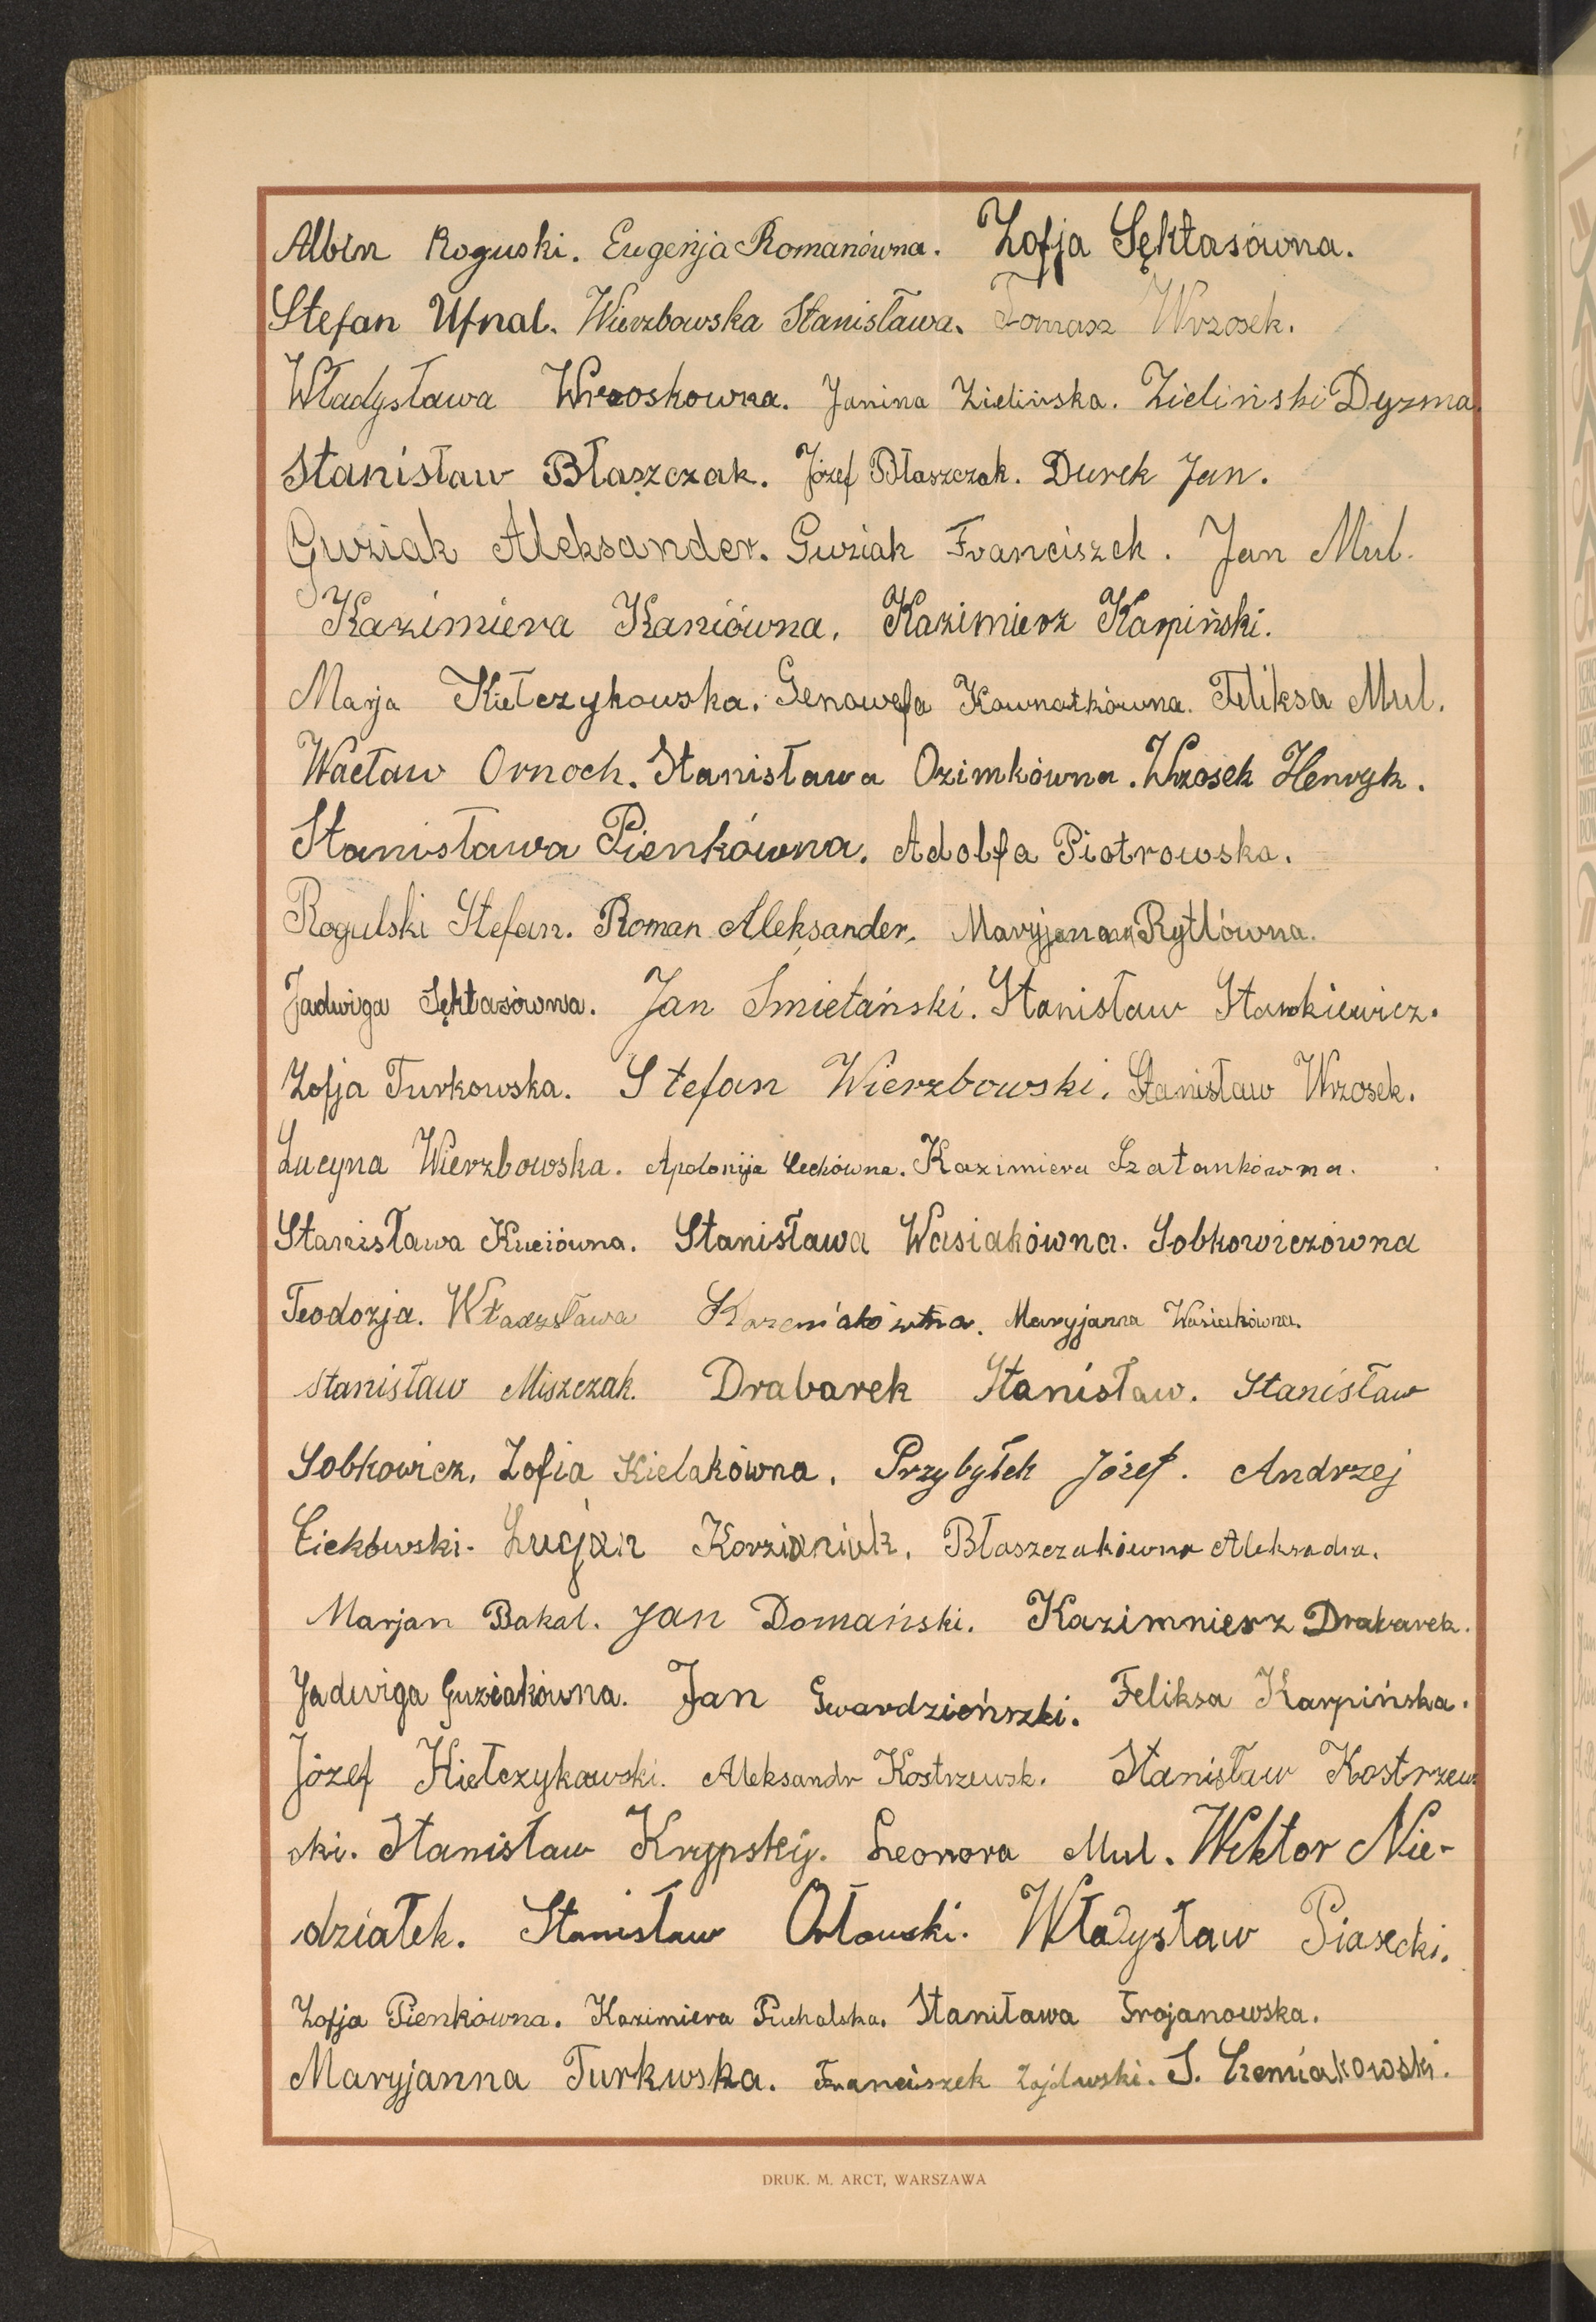 Albin Roguski. Eugenja Romanówna. Zofja Sęktasówna.
Stefan Ufnal. Wierzbowska Stanisława. Tomasz Wrzosek.
Władysława Wrzoskowna. Janina Zielińska. Zieliński Dyzma.
Stanisław Błaszczak. Józef Błaszczak. Durek Jan.
Guziak Aleksander. Guziak Franciszek. Jan Mul.
Kazimiera Kaniówna. Kazimierz Karpiński.
Marja Kiełczykowska. Genowefa Kownatkówna. Feliksa Mul.
Wacław Ornoch. Stanisława Ozimkówna. Wrzosek Henryk.
Stanisława Pienkówna. Adolfa Piotrowska.
Rogulski Stefan. Roman Aleksander. Maryjanna Rytlówna.
Jadwiga Sęktasówna. Jan Smietański. Stanisław Stankiewicz.
Zofja Turkowska. Stefan Wierzbowski. Stanisław Wrzosek.
Lucyna Wierzbowska. Apolonija Cechówna. Kazimiera Szatankówna.
Stanisława Kuciówna. Stanisława Wasiakówna. Sobkowiczówna
Teodozja. Maryjanna Wasiakówna.
Stanisław Miszczak. Drabarek Stanisław. Stanisław
Sobkowicz. Zofia Kielakówna. Przybyłek Józef. Andrzej
Ciekowski. Lucjan Korzianiuk. Błaszczakówna Aleksadra.
Marjan Bakal. Jan Domański. Kazimnierz Drabarek.
Jadwiga Guziakówna. Jan Gwardzieńszki. Feliksa Karpińska.
Józef Kiełczykowski. Aleksandr Kostrzewsk. Stanisław Kostrzew
ski. Stanisław Krypskij. Leonora Mul. Wiktor Nie-
działek. Stanisław Orłowski. Władysław Piasecki.
Zofja Pienkówna. Kazimiera Puchalska. Staniława Trojanowska.
Maryjanna Turkuska. Franciszek Zajdluski. S. Czemiakowski.
DRUK. M. ARCT, WARSZAWA